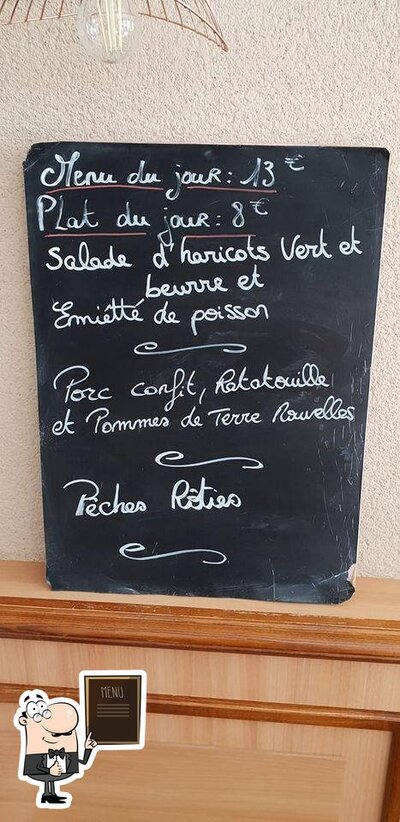 Menu du jour : 13 €
Plat du jour : 8 €
Salade d'haricots Vert et
beurre et
Emiétté de poisson
Porc confit, Ratatouille
et Pommes de Terre Nouvelles
Pêches Rôties
MENU